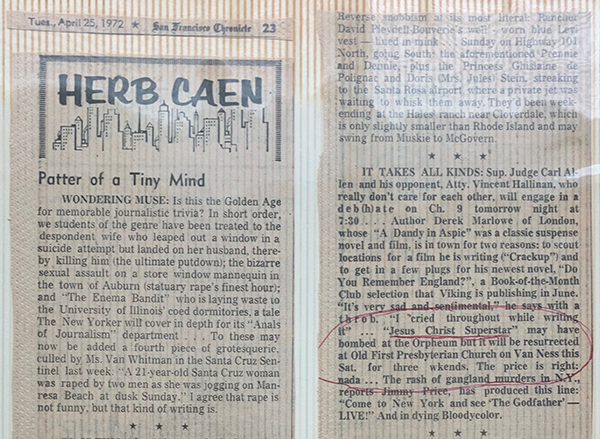 Tues., April 25, 1972 ★ San Francisco Chronicle 23
HERB CAEN
Patter of a Tiny Mind
WONDERING MUSE: Is this the Golden Age
for memorable journalistic trivia? In short order,
we students of the genre have been treated to the
despondent wife who leaped out a window in a
suicide attempt but landed on her husband, there-
by killing him (the ultimate putdown); the bizarre
sexual assault on a store window mannequin in
the town of Auburn (statuary rape's finest hour);
and "The Enema Bandit" who is laying waste to
the University of Illinois' coed dormitories, a tale
The New Yorker will cover in depth for its "Anals
of Journalism" department . . . To these may
now be added a fourth piece of grotesquerie,
culled by Ms. Van Whitman in the Santa Cruz Sen-
tinel last week: "A 21-year-old Santa Cruz woman
was raped by two men as she was jogging on Man-
resa Beach at dusk Sunday." I agree that rape is
not funny, but that kind of writing is.
★ ★ ★
Reverse mobbism at its most literal: Rancher
David Pleydell-Bouverie's well-worn blue Levi
vest — lined in mink . . . Sunday on Highway 101
North, going South: the aforementioned Prennie
and Dennie, plus the Princess Ghislaine de
Polignac and Doris (Mrs. Jules) Stein, streaking
to the Santa Rosa airport, where a private jet was
waiting to whisk them away. They'd been week-
ending at the Hales' ranch near Cloverdale, which
is only slightly smaller than Rhode Island and may
swing from Muskie to McGovern.
★ ★ ★
IT TAKES ALL KINDS: Sup. Judge Carl Al-
len and his opponent, Atty. Vincent Hallinan, who
really don't care for each other, will engage in a
deb(h)ate on Ch. 9 tomorrow night at
7:30 . . . Author Derek Marlowe of London,
whose "A Dandy in Aspic" was a classic suspense
novel and film, is in town for two reasons: to scout
locations for a film he is writing ("Crackup") and
to get in a few plugs for his newest novel, "Do
You Remember England?", a Book-of-the-Month
Club selection that Viking is publishing in June.
"It's very sad and sentimental," he says with a
throb. "I cried throughout while writing
it" ... "Jesus Christ Superstar" may have
bombed at the Orpheum but it will be resurrected
at Old First Presbyterian Church on Van Ness this
Sat. for three wkends. The price is right:
nada . . . The rash of gangland murders in N.Y.,
reports Jimmy Price, has produced this line:
"Come to New York and see 'The Godfather' —
LIVE!" And in dying Bloodycolor.
★ ★ ★